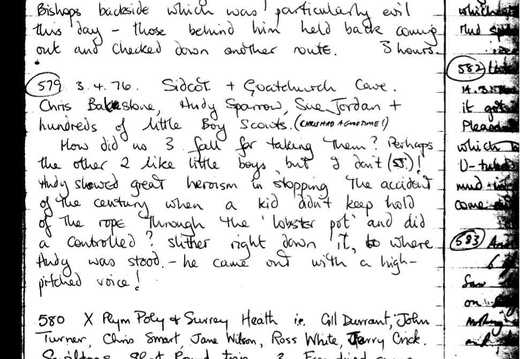 Bishops backside which was particularly evil
this day - those behind him held back coming
out and checked down another route. 3 hours.
579 3.4.76. Sidcot + Goatchurch Cave.
Chris Bakestone, Andy Sparrow, Sue Jordan +
hundreds of little Boy Scouts. (CHRIS HAD A GOOD TIME!)
How did no 3 fall for taking them? Perhaps
the other 2 like little boys, but I don't (SJ)!
Andy showed great heroism in stopping the accident
of the century when a kid didn't keep hold
of the rope through the 'lobster pot' and did
a controlled? slither right down it, to where
Andy was stood. - he came out with a high-
pitched voice!
580 X Plym Poly & Surrey Heath i.e. Gill Durrant, John
Turner, Chris Smart, Jane Wilson, Ross White, Terry Crick.
582
it
which
U-tu
mud +
come
583
6
Saw
on